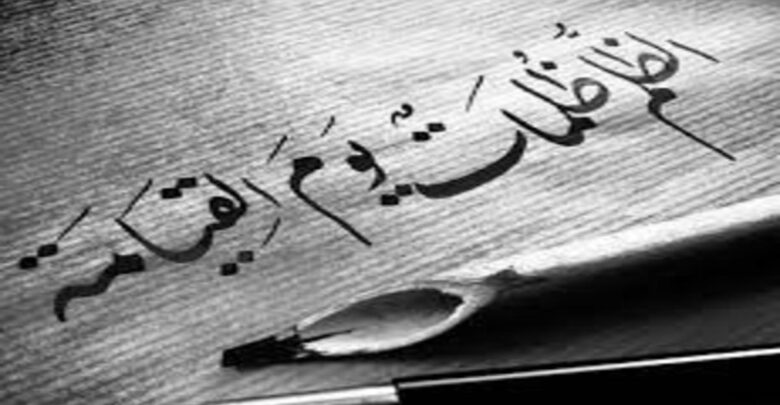 الظلم ظُلُماتٌ يَومَ القِيَامَة